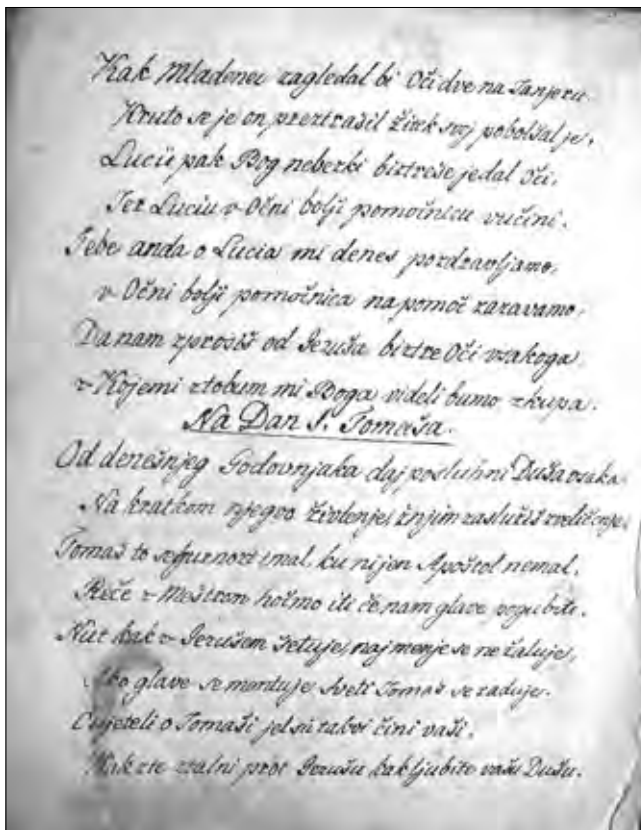 Kak Mladenec zagledal bi Oči dve na Tanjeru.
Kruto se je on, preztrašil žitek svoj pobolšal je.
Lucii pak Bog neberki biztreše je dal oči,
Ter Luciu v Očni bolji pomočnicu vučini.
Tebe anda o Lucia mi denes pozdravljamo,
v Očni bolji pomočnica na pomoč zazavamo,
Da nam zprosiš od Jezuša biztre Oči vsakoga,
z Kojemi ztobum mi Boga videli bumo zkupa.
Na Dan S. Tomaša.
Od denešnjeg Godovnjaka daj posluhni Duša vsaka.
Na kratkom njegvo živlenje, žnjim zaslužiš zveličenje,
Tomaš to segurnozt imal, ku nijen Apoštol nemal.
Reče z Meštrom hočmo iti če nam glave pogubiti.
Nut kak z Jezušem šetuje, naj menje se ne žaluje,
Ako glave se mentuje Sveti Tomaš se raduje.
o Tomaši jel su takvi čini vaši.
Kak zte ztalni prot Jezušu kak ljubite vašu Dušu.